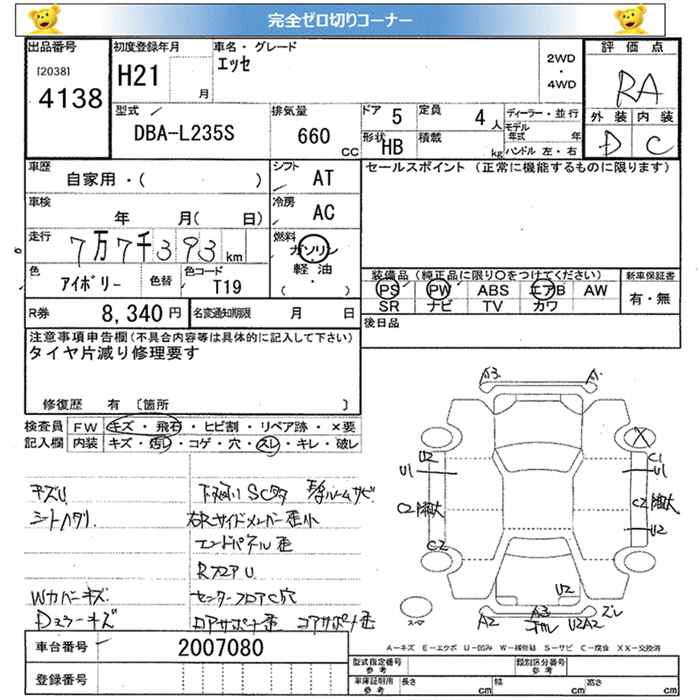 完全ゼロ切りコーナー
出品番号
[2038]
4138
初度登録年月
H21
月
車名・グレード
エッセ
2WD
・
4WD
評価点
RA
外装 内装
D C
型式
DBA-L235S
排気量
660
CC
ドア 5
定員 4人
形状 HB
積載 kg
ディーラー・並行
モデル年式 年
ハンドル 左・右
車歴
自家用・( )
シフト
AT
車検
年 月( 日)
冷房
AC
走行
7万7千393km
燃料
ガソリン
軽油
( ・ )
色
アイボリー
色替
色コード
T19
R券 8,340円
名変通知期限 月 日
セールスポイント (正常に機能するものに限ります)
装備品 (純正品に限り○をつけてください)
PS PW ABS エアB AW
SR ナビ TV カワ
新車保証書
有・無
後日品
注意事項申告欄(不具合内容等は具体的に記入して下さい)
タイヤ片減り修理要す
修復歴 有 〔箇所 〕
検査員
記入欄
FW キズ・飛石・ヒビ割・リペア跡・×要
内装 キズ・汚レ・コゲ・穴・スレ・キレ・破レ
キズU
下廻り SCタタ
右Rサイドメンバー歪小
エンドパネル歪
RフロアU
Wカバーキズ
センターフロアC穴
Dミラーキズ
ロアサポート歪 コアサポート歪
A3 A
X
U2 C1
U1 U1
C2 C2
C2 U2
U2
A2 A3 U2A2 ズレ
スペア
A-キズ E-エクボ U-凹み W-補修跡 S-サビ C-腐食 XX-交換済
車台番号
2007080
登録番号
型式指定番号
参考
類別区分番号
参考
車庫証明用
参考
長さ cm
幅 cm
高さ cm